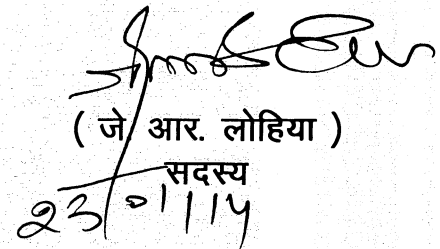 ( जे. आर. लोहिया )
सदस्य
23/01/14